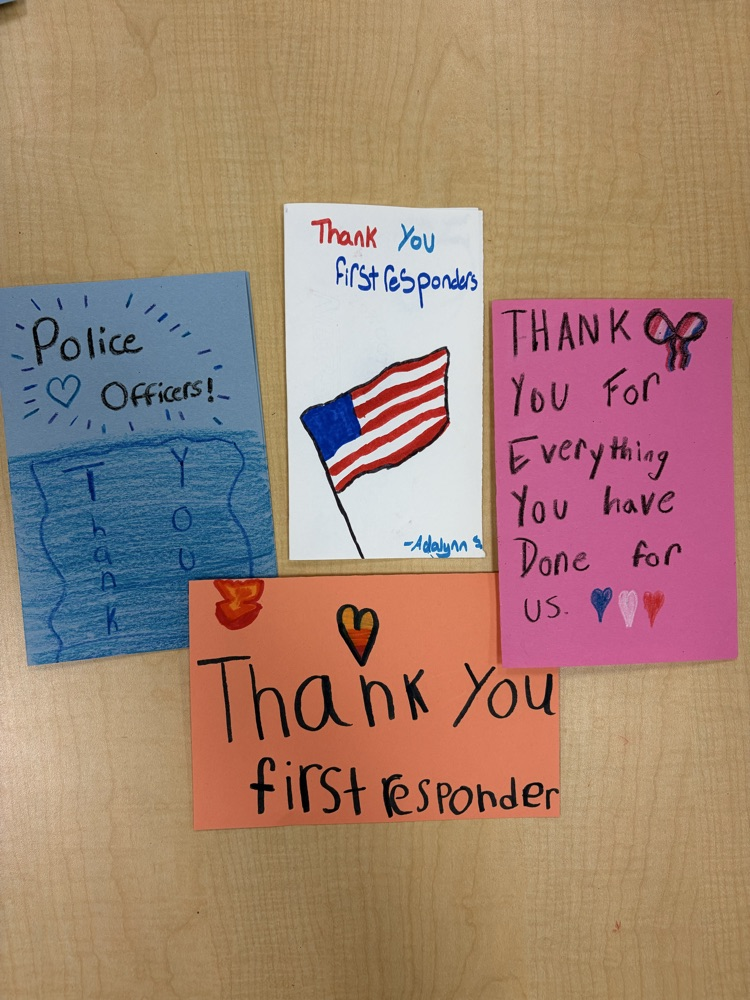 Police
Officers!
Thank
You
Thank You
first responders
-Adalynn
THANK
You For
Everything
You have
Done for
us.
Thank You
first responder